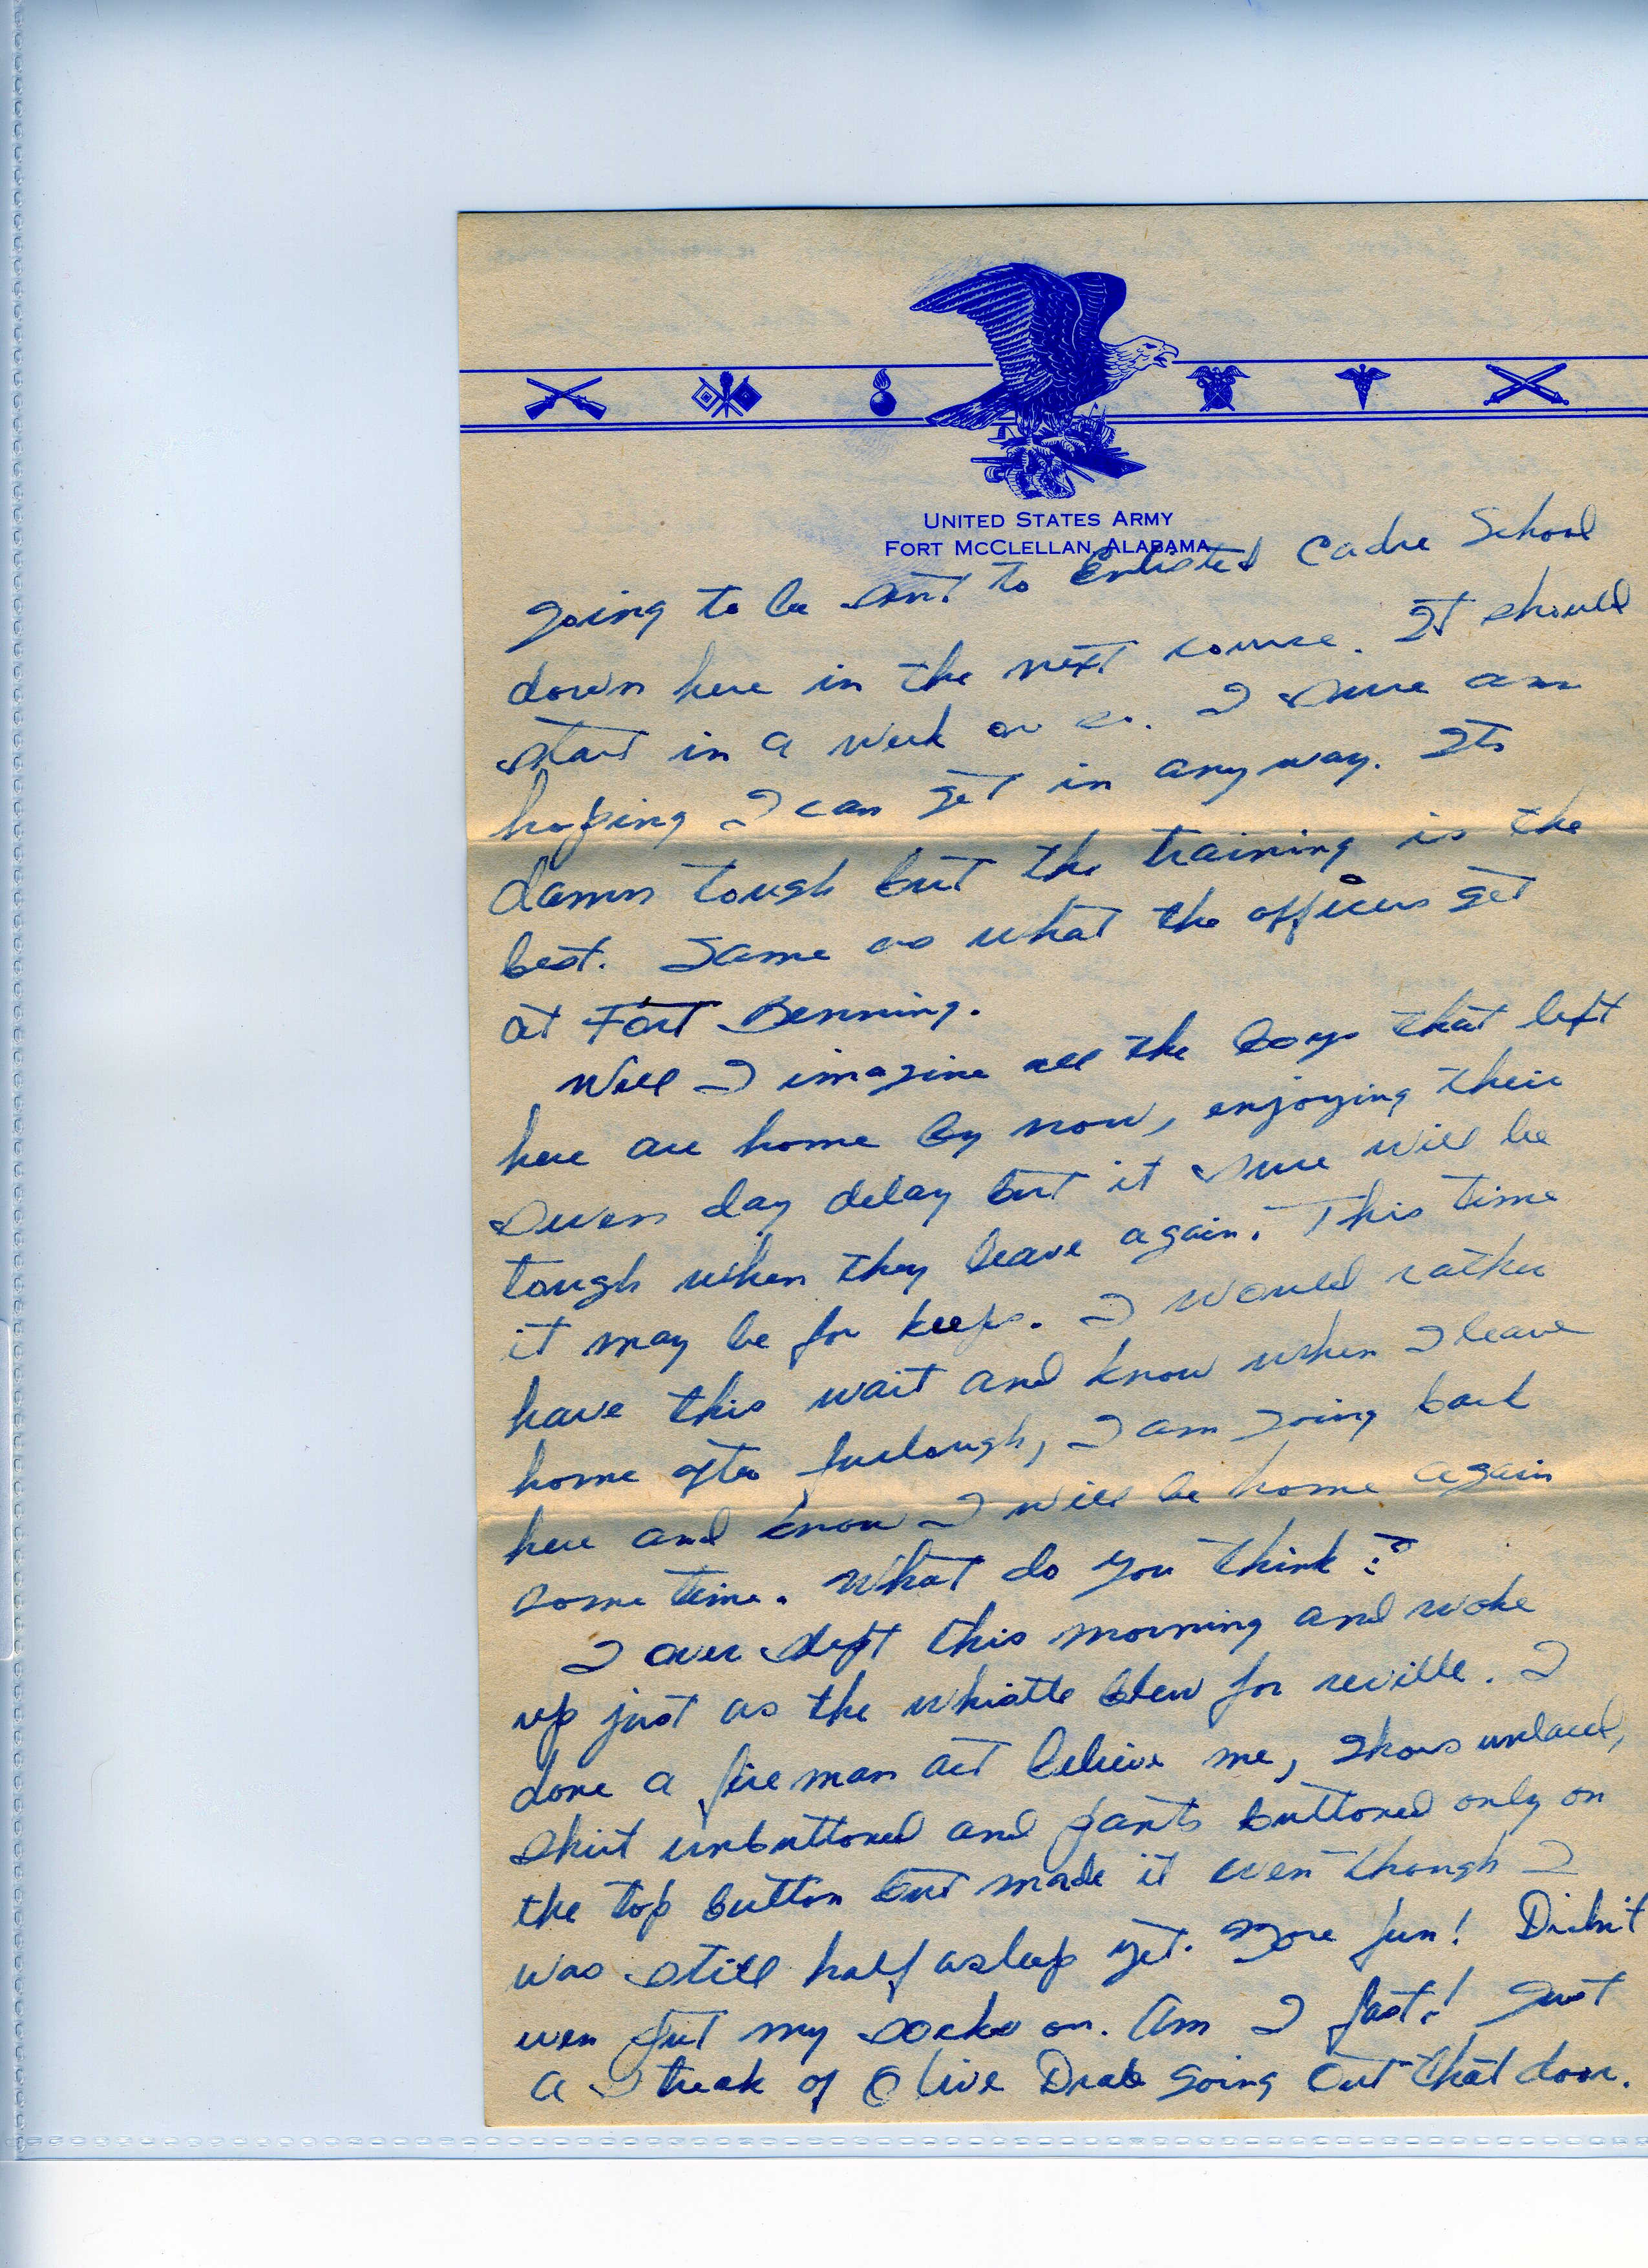 UNITED STATES ARMY
FORT MCCLELLAN, ALABAMA
going to be sent to Enlisted Cadre School
down here in the next course. It should
start in a week or so. I sure am
hoping I can get in anyway. Its
damn tough but the training is the
best. Same as what the officers get
at Fort Benning.
Well I imagine all the boys that left
here are home by now, enjoying their
seven day delay but it sure will be
tough when they leave again. This time
it may be for keeps. I would rather
have this wait and know when I leave
home after furlough, I am going back
here and know I will be home again
some time. What do you think?
I over slept this morning and woke
up just as the whistle blew for reville. I
done a fire man act believe me, shoes unlaced,
shirt unbuttoned and pants buttoned only on
the top button but made it even though I
was still half asleep yet. More fun! Didn't
even put my socks on. Am I fast! Just
a streak of Olive Drab going out that door.